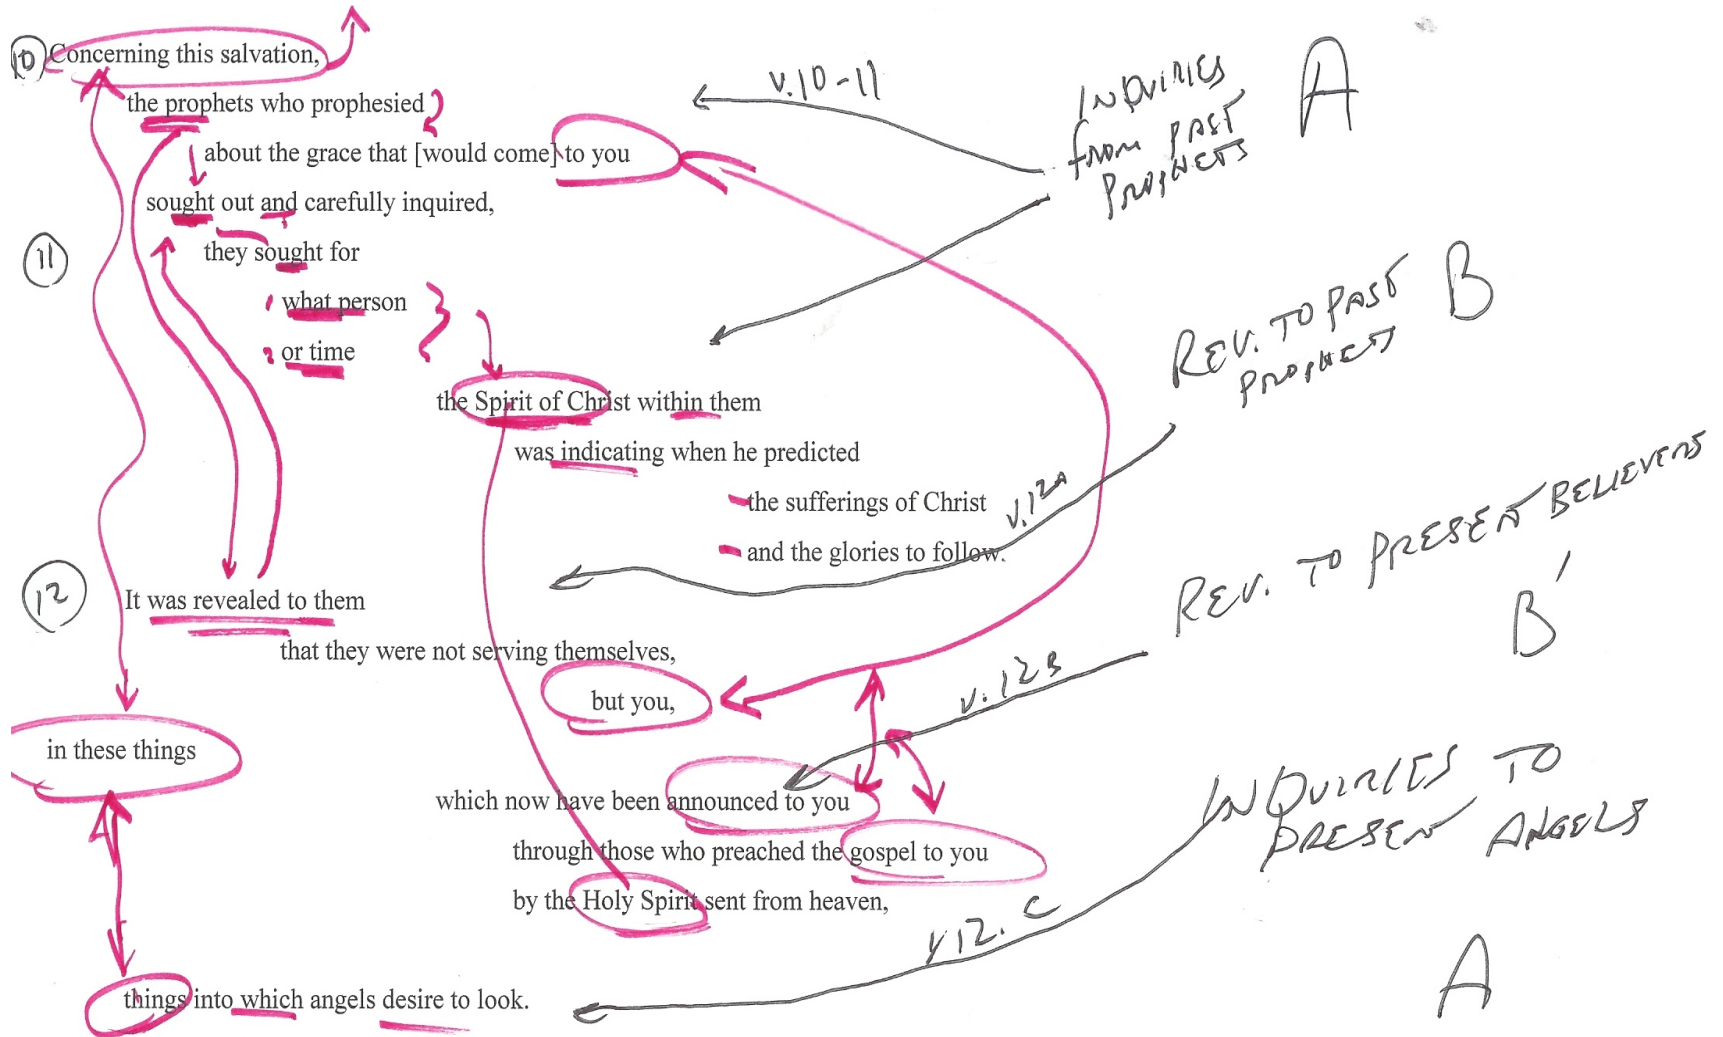 10 Concerning this salvation,
the prophets who prophesied
about the grace that [would come] to you
sought out and carefully inquired,
11 they sought for
1 what person
2 or time
the Spirit of Christ within them
was indicating when he predicted
the sufferings of Christ
and the glories to follow.
12 It was revealed to them
that they were not serving themselves,
but you,
in these things
which now have been announced to you
through those who preached the gospel to you
by the Holy Spirit sent from heaven,
things into which angels desire to look.
v.10-11
INQUIRIES
from PAST
PROPHETS
A
REV. TO PAST
PROPHETS
B
v.12A
REV. TO PRESENT BELIEVERS
B'
v.12B
INQUIRIES TO
PRESENT ANGELS
v12.C
A